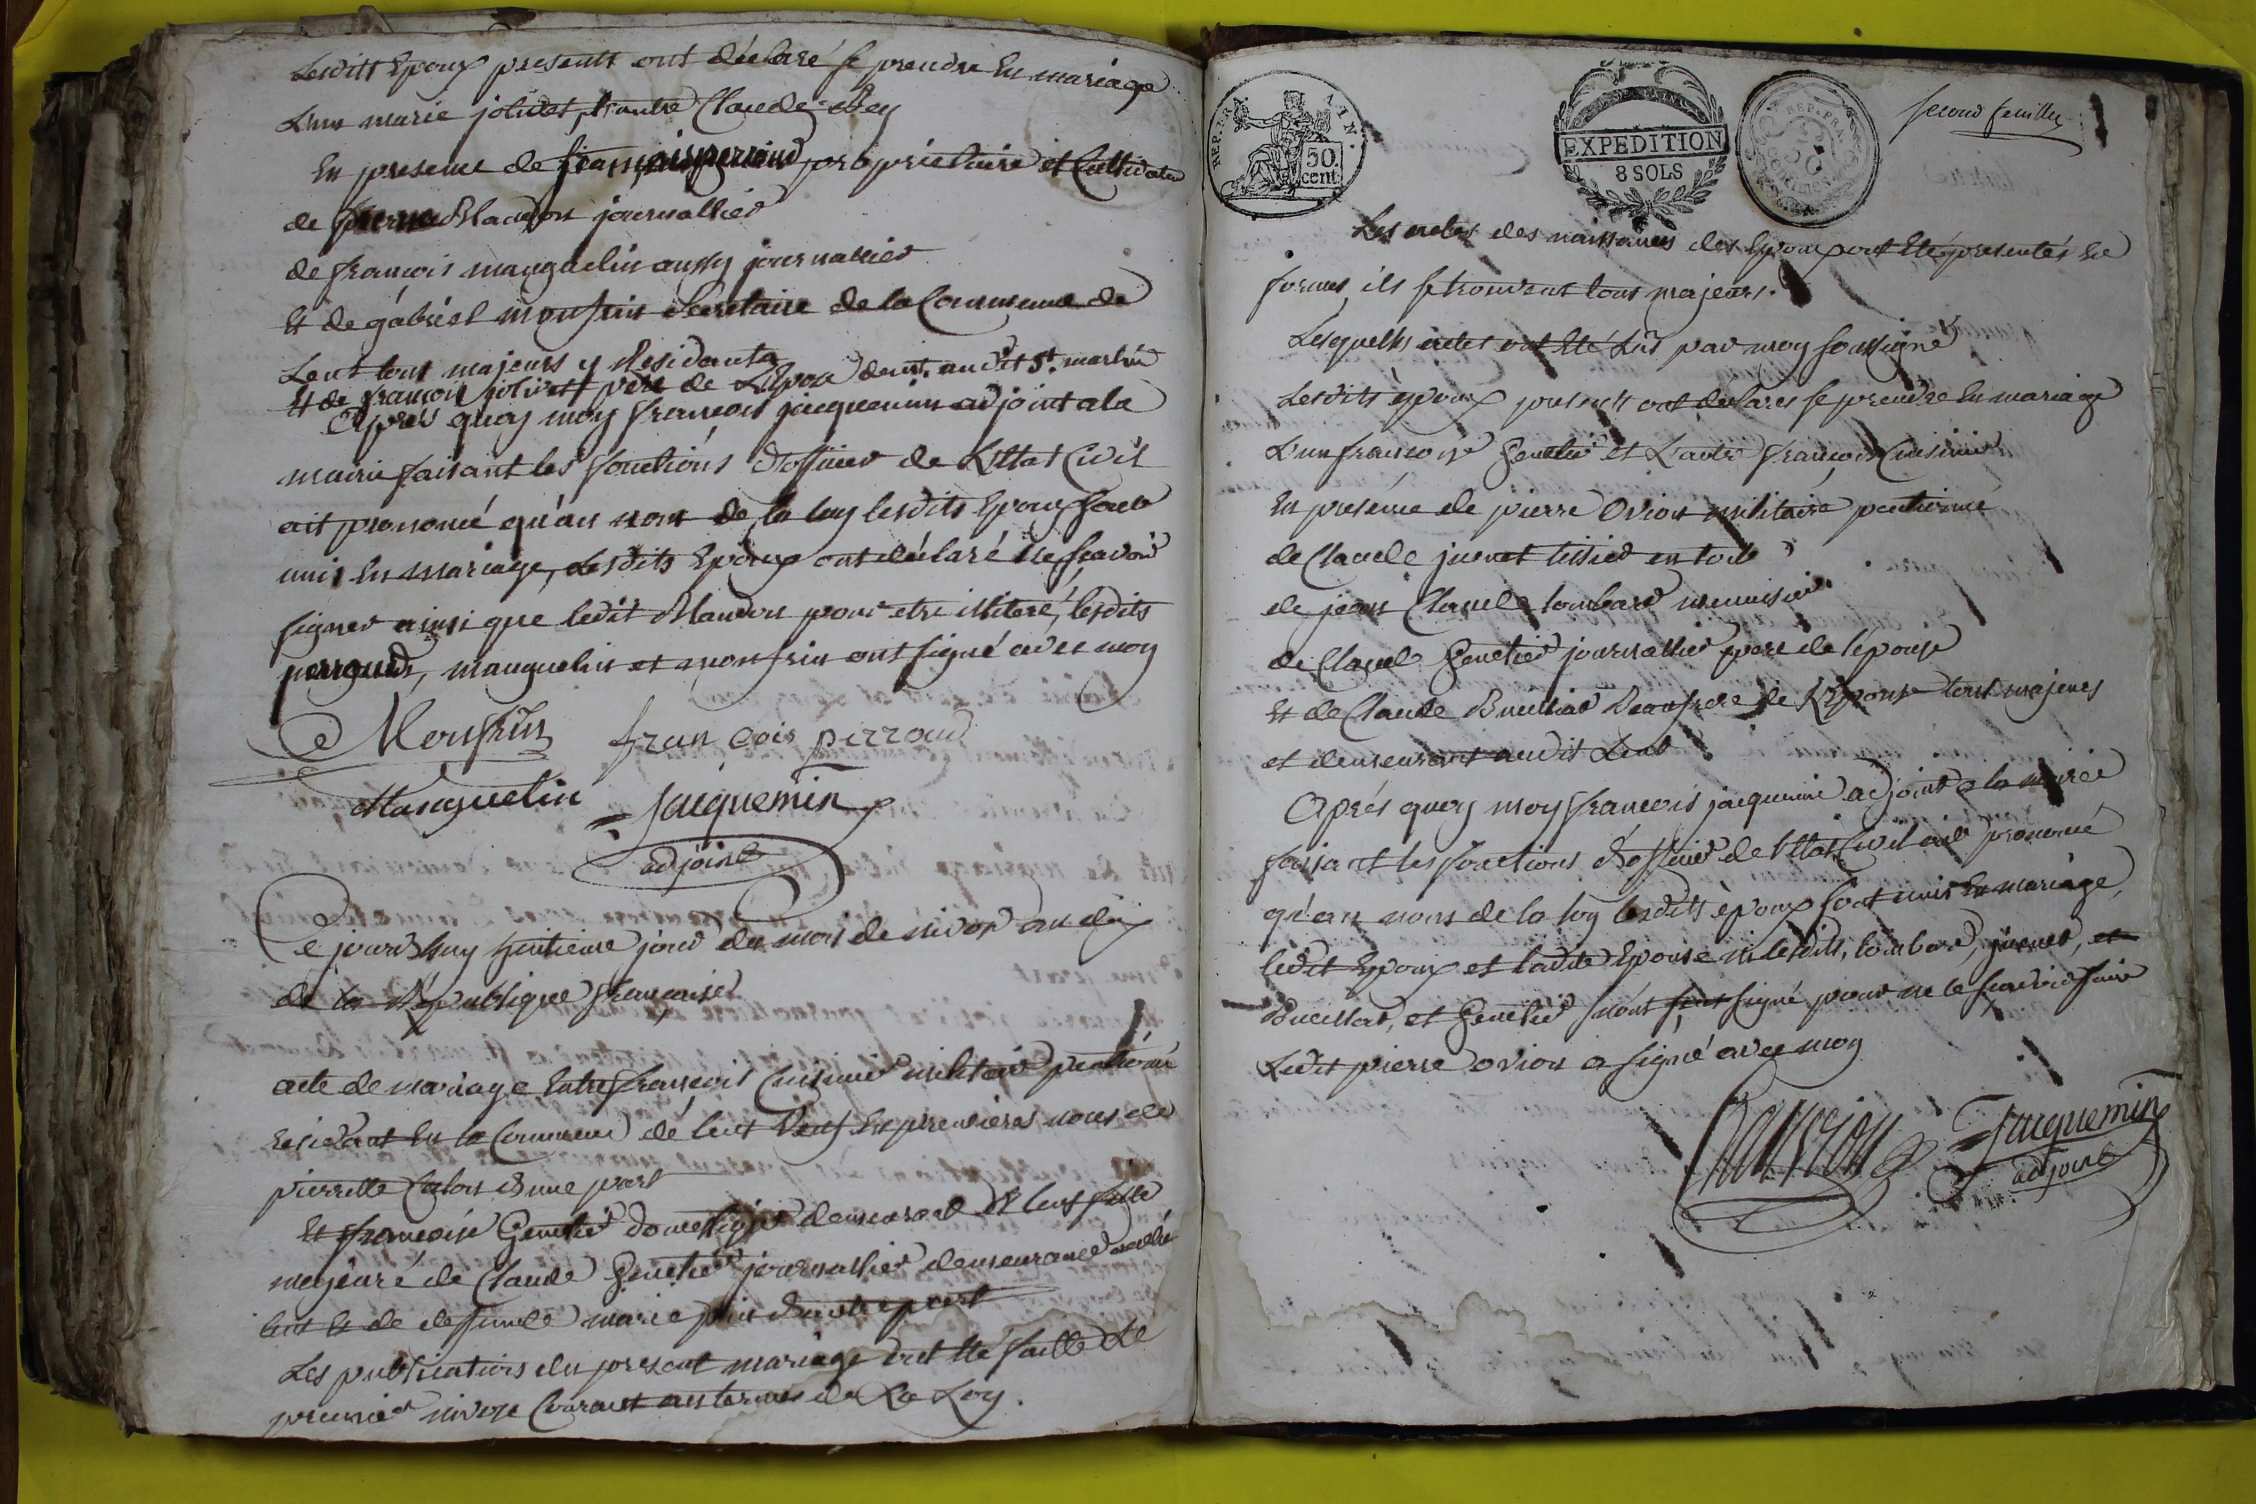 Lesdits Epoux presents ont déclaré se prendre En mariage
L'un marie jolivet, l'autre Claude Rey
En presence de françois perroud proprietaire et Cultivateur
de pierre Blandon journallier
de françois manguelin aussy journallier
Et de gabriel monfrin Secretaire de la Commune de
Lent tous majeurs y Residants
Et de françois jolivet père de L'Epouse demt. audit St. martin
Aprés quoy moy françois jacquemin adjoint a la
mairie faisant les fonctions d'officier de L'Etat Civil
ait prononcé qu'au nom de la loy lesdits Epoux sont
unis En mariage, Lesdits Epoux ont déclaré ne scavoir
signer ainsi que ledit Blandon pour etre illiteré, lesdits
perroud, manguelin et monfrin ont signé avec moy
Monfrin françois perroud
Manguelin Jacquemin
adjoint
Ce jourd'huy huitieme jour du mois de nivos an dix
de la République françaises
acte de mariage Entre françois Cuisinier militaire pentionné
residant En la Commune de lent Veuf En premieres noces de
pierrette Calon d'une part
Et françoise Genetier domestique demeurant à lent fille
majeure de Claude Genetier journallier demeurant audit
lent Et de deffunte marie d'autre part
Les publications du present mariage ont Eté faitte Le
premier nivose Courant aux termes de La Loy.
REP. FRA. 50. cent.
EXPEDITION
8 SOLS
REP. FRA.
second feuillet
Les actes des naissances des Epoux ont Eté presentés En
formes, ils se trouvent tous majeurs.
Lesquelles actes ont Eté Lus par moy soussigné
Lesdits époux presents ont déclarés se prendre En mariage
L'un françoise Genetier et L'autre françois Cuisinier
En presence de pierre Ovion militaire pentionné
de Claude juenet tissier en toile
de jean Claude lombard menuisier
de Claude Genetier journallier pere de l'épouse
Et de Claude Buellard Beaufrere de L'Epouse tous majeurs
et demeurant audit Lent
Aprés quoy moy françois jacquemin adjoint a la mairie
faisant les fonctions d'officier de l'Etat Civil ait prononcé
qu'au nom de la loy lesdits époux sont unis En mariage,
ledit Epoux et ladite Epouse ni lesdits, lombard, juenet, et
Buellard, et Genetier n'ont signé pour ne le scavoir faire
Ledit pierre ovion a signé avec moy
Jacquemin
adjoint